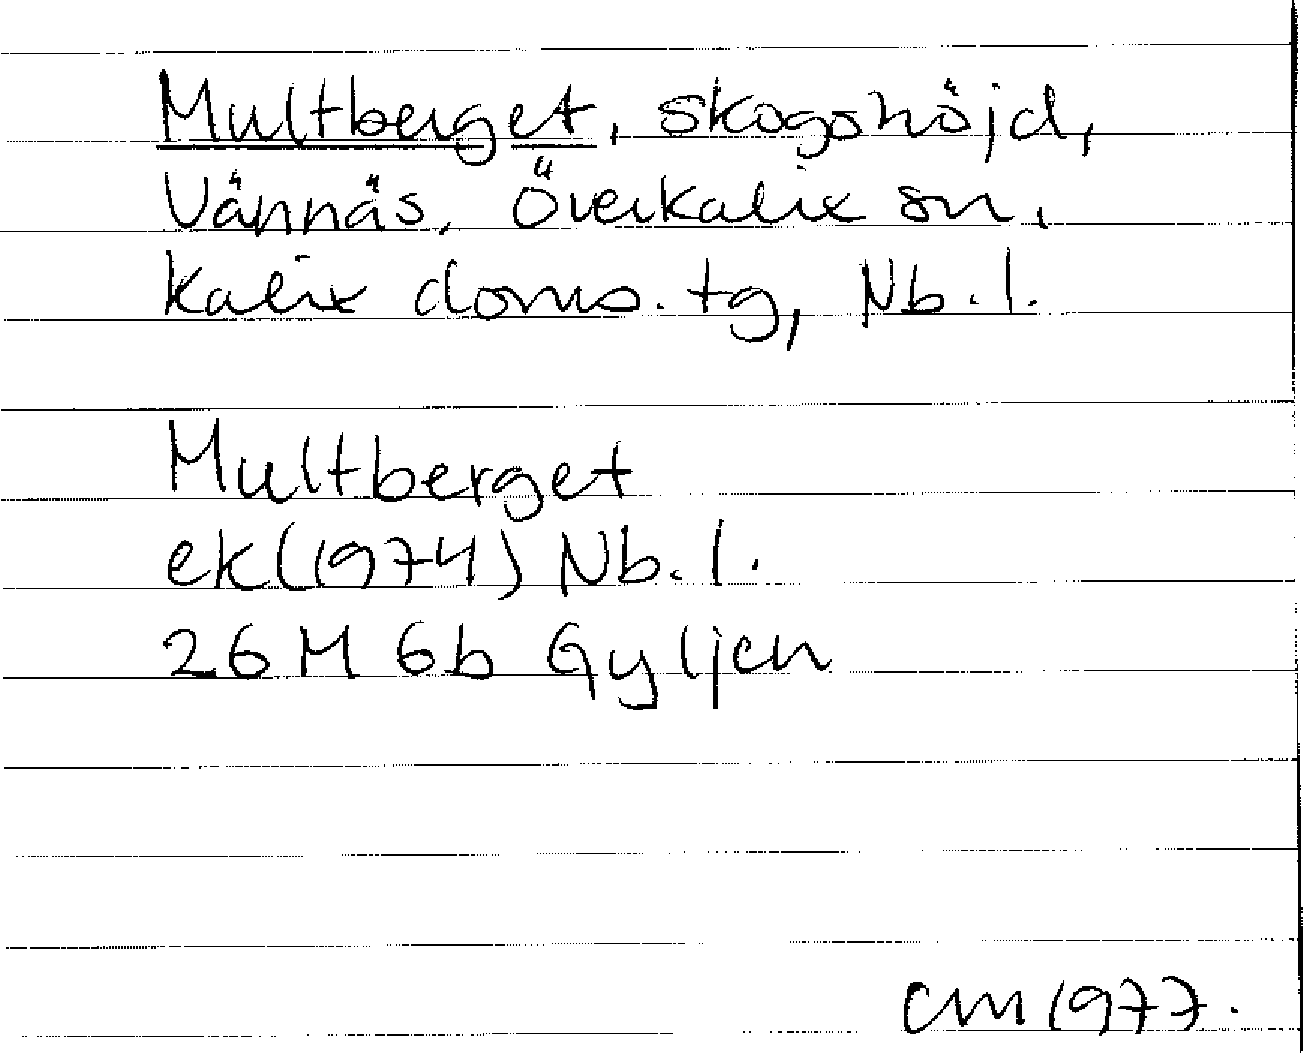 Multberget, skogshöjd,
Vännäs, Överkalix sn,
Kalix doms. tg, Nb. l.
Multberget
ek (1974) Nb. l.
26 M 6b Gyljen
CM 1977.